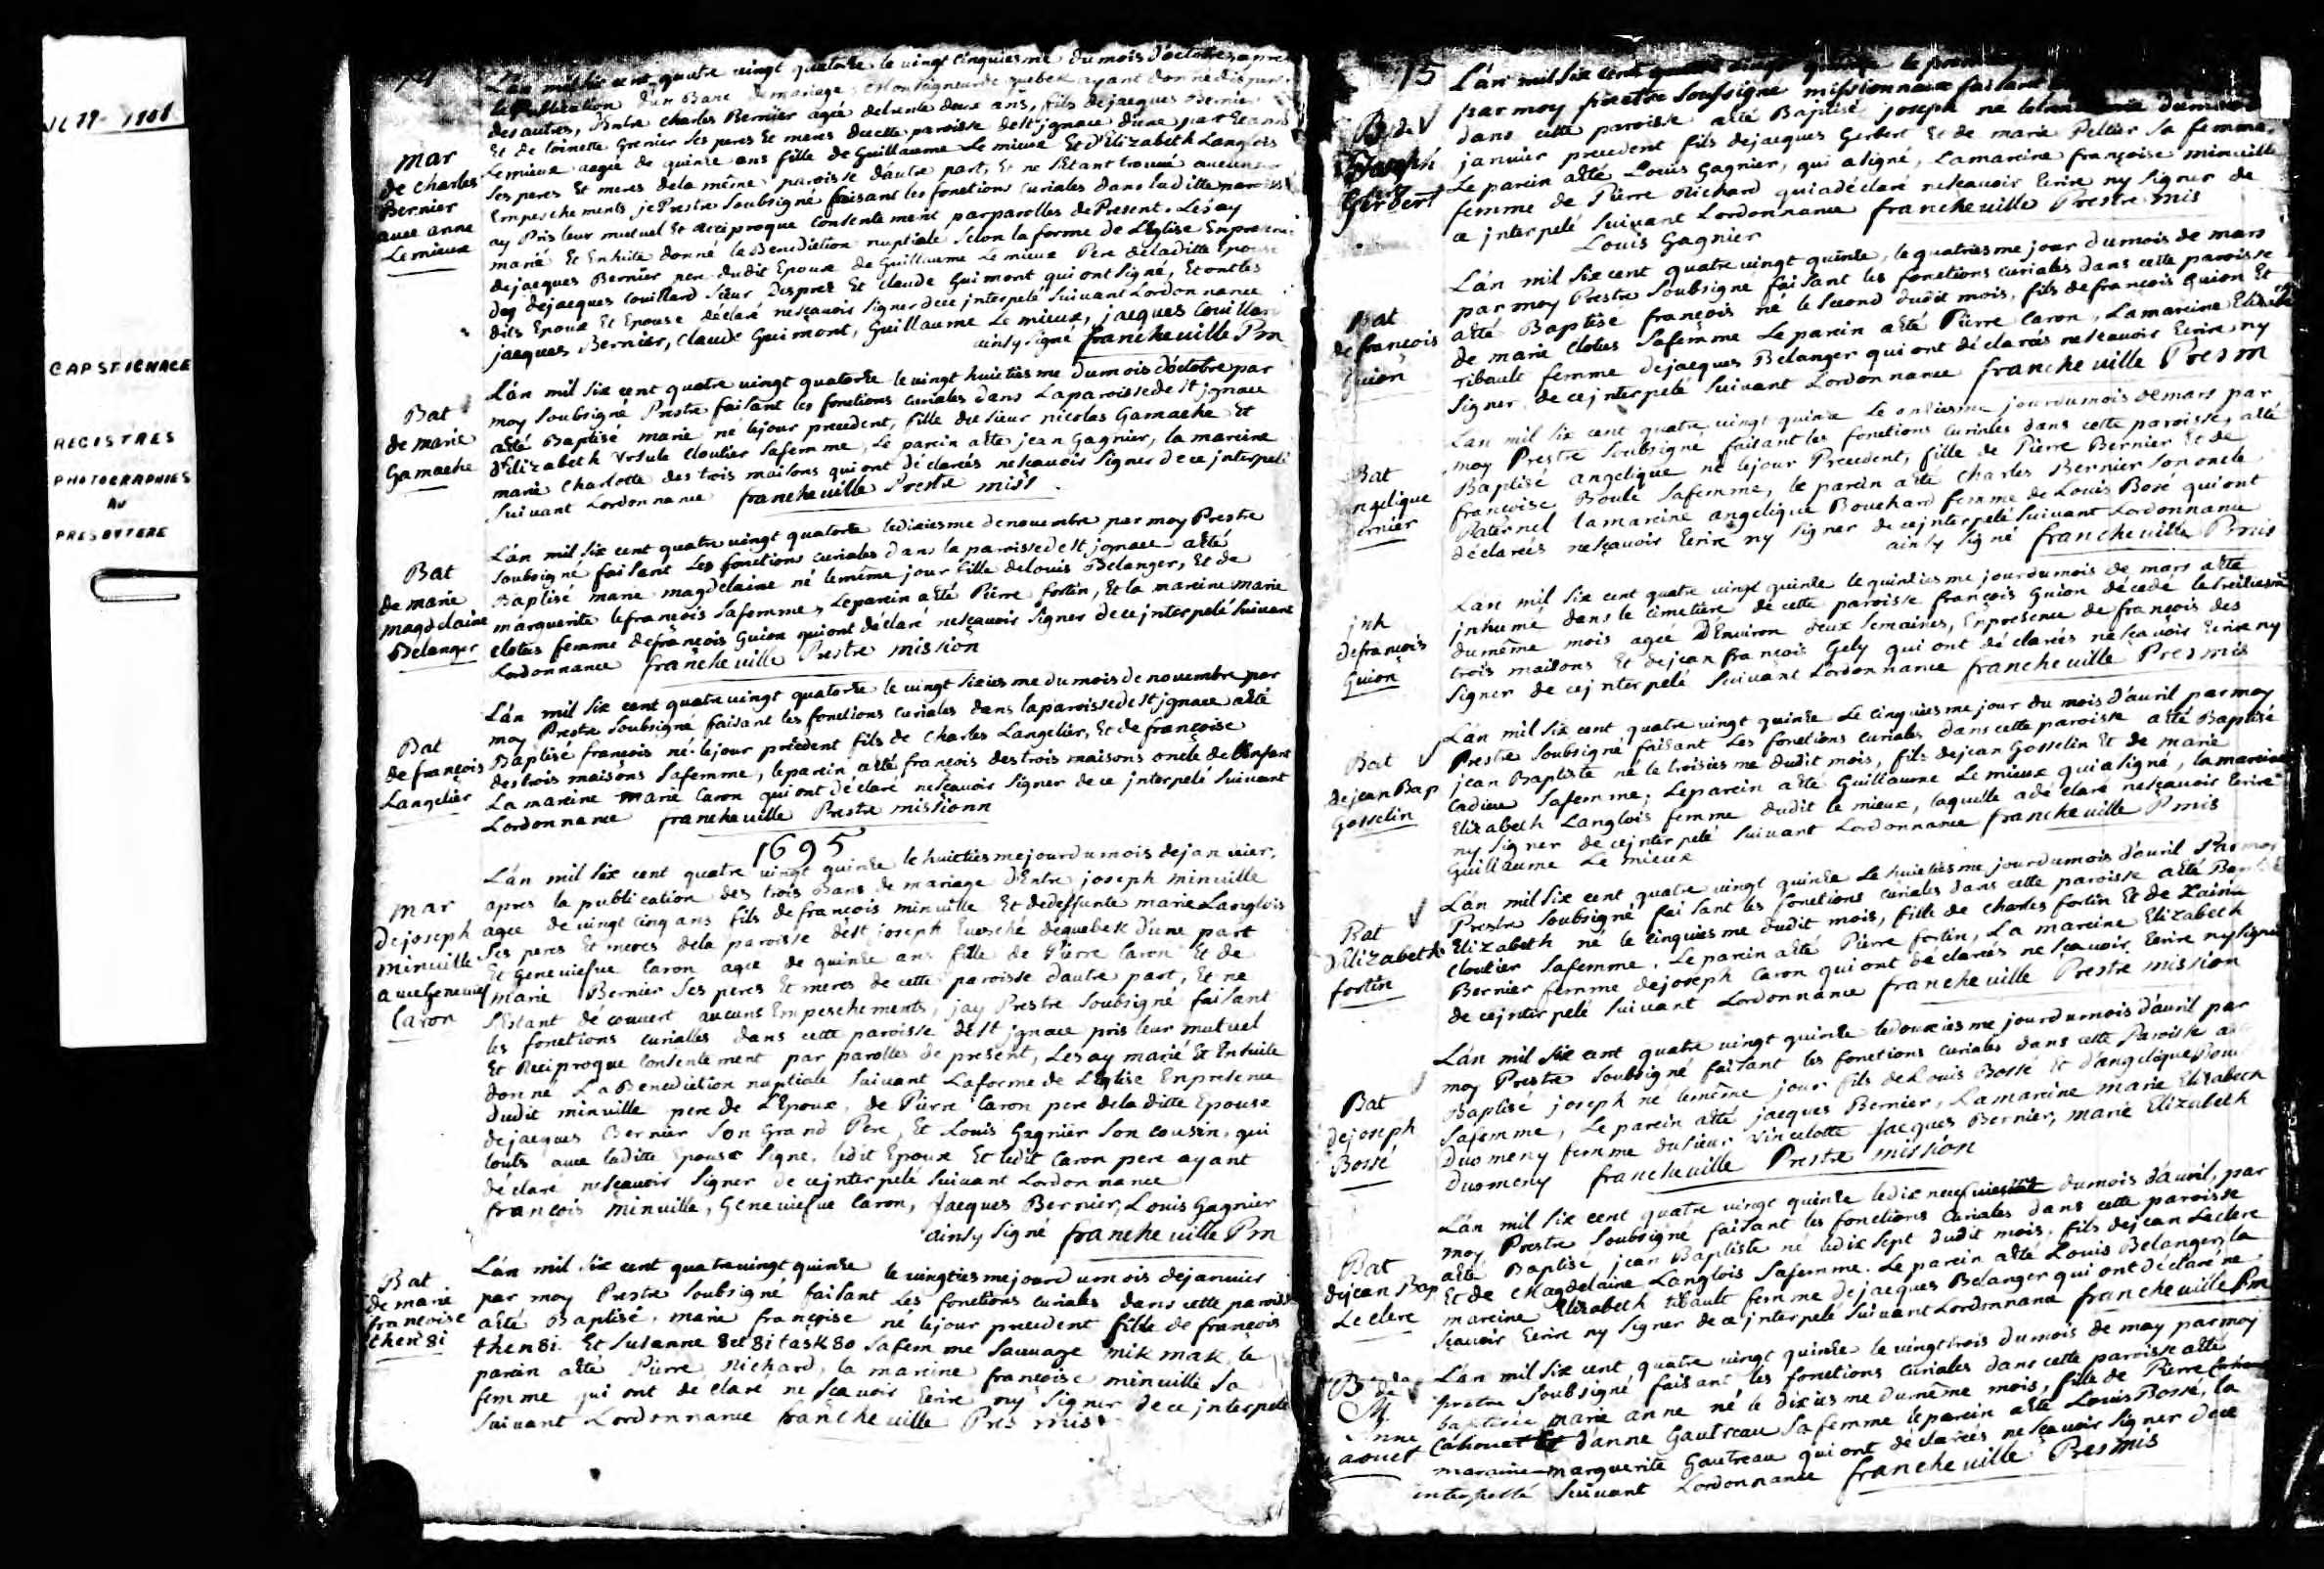 1679-1808
CAP ST IGNACE
REGISTRES
PHOTOGRAPHIES
AU
PRESBYTERE
L'an mil six cent quatre vingt quatorze le vingt cinquiesme du mois d'octobre apres
la Publication d'un Banc de mariage, Monseigneur de quebek ayant donné dispence
des autres, Entre charles Bernier agée de trente deux ans, fils de jacques Bernier
Et de toinette Grenier ses peres Et meres de cette paroisse de St jgnace d'une part Et anne
mar
de charles
Bernier
avec anne
Le mieux
Lemieux aagée de quinze ans fille de Guillaume Le mieux Et d'Elizabeth Langlois
ses peres Et meres dela même paroisse d'autre part, Et ne s'Etant trouvé aucuns
Empeschements je Prestre soubsigné faisant les fonctions curiales dans laditte paroisse
ay Pris leur mutuel Et reciproque consentement par parolles de Present. Les ay
marié Et Ensuite donné la Benediction nuptiale selon la forme de L'Eglise En presence
de jacques Bernier pere dudit Epoux de Guillaume Le mieux Pere de laditte Epouse
de jacques Couillard sieur Desprez Et claude Guimont qui ont signé, Et ont les
dits Epoux Et Epouse déclaré nesçavoir signer de ce jnterpelé suivant Lordonnance
jacques Bernier, Claude Guimont, Guillaume Le mieux, jacques Couillar
ainsy signé francheville Pm
Bat
de marie
Gamache
L'an mil six cent quatre vingt quatorze le vingt huictiesme du mois d'octobre par
moy soubsigné Prestre faisant les fonctions curiales dans La paroisse de St jgnace
aété Baptisé marie né lejour precedent, fille du sieur nicolas Gamache Et
d'Elizabeth Ursule Cloutier safemme, Le parein aété jean Gagnier, la mareine
marie Charlotte des trois maisons qui ont déclareés nesçavoir signer de ce jnterpelé
suivant Lordonnance francheville Prestre miss
Bat
de marie
magdelaine
Belanger
L'an mil six cent quatre vingt quatorze ledixiesme denovembre par moy Prestre
soubsigné faisant Les fonctions curiales dans la paroisse de St jgnace aété
Baptisé marie magdelaine né lemême jour fille delouis Belanger, Et de
marguerite lefrançois safemme, Leparein aété Pierre fortin, Et la mareine marie
clotus femme defrançois Guion qui ont déclaré nesçavoir signer de ce jnterpelé suivant
Lordonnance francheville Prestre mission
Bat
de françois
Langelier
L'an mil six cent quatre vingt quatorze le vingt sixiesme du mois de novembre par
moy Prestre soubsigné faisant les fonctions curiales dans laparoisse de St jgnace aété
Baptisé françois né lejour précedent fils de Charles Langelier, Et de françoise
destrois maisons safemme, leparein aété françois destrois maisons oncle de L'Enfant
La mareine marie Caron qui ont déclaré nesçavoir signer de ce jnterpelé suivant
Lordonnance francheville Prestre missionn
1695
mar
de joseph
minville
avec Genevief
Caron
L'an mil six cent quatre vingt quinze le huictiesme jour du mois de janvier,
apres la publication des trois Bans de mariage d'Entre joseph minville
agee de vingt cinq ans fils de françois minville Et dedeffunte marie Langlois
ses peres Et meres dela paroisse dest joseph Evesché dequebek d'une part
Et Geneviefve Caron agee de quinze ans fille de Pierre Caron Et de
marie Bernier ses peres Et meres de cette paroisse dautre part, Et ne
s'Estant découvert aucuns Empeschements, jay Prestre soubsigné faisant
les fonctions curialles dans cette paroisse de St jgnace pris leur mutuel
Et Reciproque consentement par parolles de present, Les ay marié Et Ensuite
donné La Benediction nuptiale suivant Laforme de L'Eglise Enpresence
dudit minville pere de L'Epoux, de Pierre Caron pere dela ditte Epouse
de jacques Bernier son Grand Pere, Et Louis Gagnier son cousin, qui
touts avec laditte Epouse signe, ledit Epoux Et ledit Caron pere ayant
déclaré nesçavoir signer de cejnterpelé suivant Lordonnance
françois minville, Geneviefve Caron, Jacques Bernier, Louis Gagnier
ainsy signé francheville Pm
Bat
de marie
françoise
then8i
L'an mil six cent quatrevingt quinze le vingtiesmejourdumois dejanvier
par moy Prestre soubsigné faisant Les fonctions curiales dans cette paroisse
aété Baptisé, marie françoise né lejour precedent fille de françois
then8i Et susanne 8et8itask80 safemme sauvage mikmak, le
parein aété Pierre Richard, la mareine françoise minville sa
femme qui ont declaré nesçavoir Ecrire ny signer de ce jnterpelé
suivant Lordonnance francheville Pres mis
15
B. de
Joseph
Gerbert
L'an mil six cent quatre vingt quinze le premier
par moy prestre soussigné missionnaire faisant
dans cette paroisse aété Baptisé joseph né
janvier precedent fils dejacques Gerbert Et de marie Peltier sa femme
Le parein aété Louis Gagnier, qui asigné, Lamareine françoise minville
femme de Pierre Richard quiadéclaré nesçavoir Ecrire ny signer de
ce jnterpelé suivant Lordonnance francheville Prestre mis
Louis Gagnier
Bat
de françois
Guion
L'an mil six cent quatre vingt quinze, le quatriesme jour du mois de mars
par moy Prestre soubsigne faisant les fonctions curiales dans cette paroisse
aété Baptise françois né le second dudit mois, fils defrançois Guion Et
de marie clotus safemme Le parein aété Pierre Caron, Lamareine Elizabe
Tibault femme dejacques Belanger qui ont déclareés nesçavoir Ecrire ny
signer de cejnterpelé suivant Lordonnance francheville Presm
Bat
angelique
Bernier
L'an mil six cent quatre vingt quinze Le onziesme jourdumois demars par
moy Prestre soubsigné faisant les fonctions curiales dans cette paroisse, aété
Baptisé angelique né lejour Precedent, fille de Pierre Bernier Et de
françoise Boulé safemme, le parein aété Charles Bernier sononcle
Paternel lamareine angelique Bouchard femme de Louis Bosé quiont
déclareés nesçavoir Ecrire ny signer de cejnterpelé suivant Lordonnance
ainsy signé francheville Pmis
jnh
defrançois
Guion
L'an mil six cent quatre vingt quinze lequinziesme jourdumois de mars aété
jnhumé dans le cimetiere de cette paroisse françois Guion décedé letreiziesme
dumême mois ageé D'Environ deux semaines, Enpresence de françois des
trois maisons Et dejean françois Gely qui ont déclareés nesçavoir Ecrire ny
signer de cejnterpelé suivant Lordonnance francheville Presmis
Bat
dejean Bap
Gosselin
L'an mil six cent quatre vingt quinze Le cinquiesme jour du mois d'avril parmoy
Prestre soubsigné faisant Les fonctions curiales dans cette paroisse aété Baptisé
jean Baptiste né le troisiesme dudit mois, fils dejean Gosselin Et de marie
Cadieu safemme; Leparein aété Guillaume Le mieux quiasigné, lamareine
Elizabeth Langlois femme dudit le mieux, laquelle adéclaré nesçavoir Ecrire
ny signer decejnterpelé suivant Lordonnance francheville Pmis
Guillaume Le mieux
Bat
d'Elizabeth
fortin
L'an mil six cent quatre vingt quinze Le huictiesme jourdumois d'avril Parmoy
Prestre soubsigné faisant les fonctions curiales dans cette paroisse aété Bapt
Elizabeth né le cinquiesme dudit mois, fille de charles fortin Et de Xainte
cloutier safemme. Le parein aété Pierre fortin, La mareine Elizabeth
Bernier femme dejoseph Caron qui ont déclareés nesçavoir Ecrire nysigner
de cejnterpelé suivant Lordonnance francheville Prestre mission
Bat
dejoseph
Bossé
L'an mil six cent quatre vingt quinze ledouziesme jourdumois d'avril par
moy Prestre soubsigné faisant les fonctions curiales dans cette Paroisse a
Baptisé joseph né lemême jour fils deLouis Bossé Et d'angelique Bou
safemme, Le parein aété jacques Bernier, Lamareine marie Elizabeth
Dusmeny femme dusieur Vincelotte Jacques Bernier, marie Elizabeth
Dusmeny francheville Prestre mission
Bat
dejean Bap
Leclerc
L'an mil six cent quatre vingt quinze ledix neufviesme dumois d'avril, par
moy Prestre soubsigné faisant les fonctions curiales dans cette paroisse
aété Baptisé jean Baptiste né ledix sept dudit mois, fils dejean Leclerc
Et de Magdelaine Langlois safemme. Le parein aété Louis Belanger, la
mareine Elizabeth tibault femme dejacques Belanger qui ont déclaré ne
sçavoir Ecrire ny signer dece jnterpelé suivant Lordonnance francheville Pm
B de
M.
Anne
aouet
L'an mil six cent quatre vingt quinze le vingttrois dumois de may parmoy
prestre soubsigné faisant les fonctions curiales dans cette paroisse aété
baptisée marie anne né le dixiesme dumême mois, fille de Pierre
Cahouet Et d'anne Gautreau safemme leparein aété Louis Bossé, la
maraine marguerite Gautreau qui ont déclareés nesçavoir signer dece
interpellé suivant Lordonnance francheville Presmis